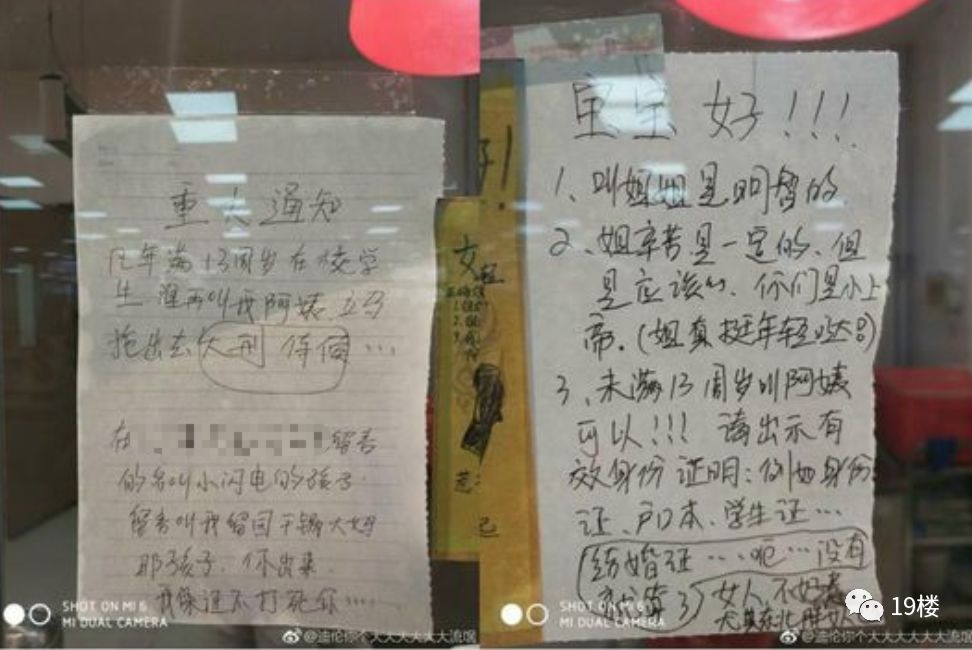 重大通知
凡年满13周岁在校学
生 谁再叫我阿姨 立马
拖出去大刑伺候…
在 留言
的名叫小闪电的孩子
留言叫我留园干锅大妈
那孩子,你出来.
我保证不打死你……
宝宝好!!!
1、叫姐姐是明智的
2、姐辛苦是一定的、但
是应该的、你们是小上
帝.(姐真挺年轻哒!)
3、未满13周岁叫阿姨
可以!!! 请出示有
效身份证明:例如身份
证、户口本、学生证…
结婚证……呃…没有
就算了 女人不好惹
女
SHOT ON MI 6
MI DUAL CAMERA
@迪伦你个大大大大大大流氓
SHOT ON MI 6
MI DUAL CAMERA
@迪伦你个大大大大大大流氓
19楼